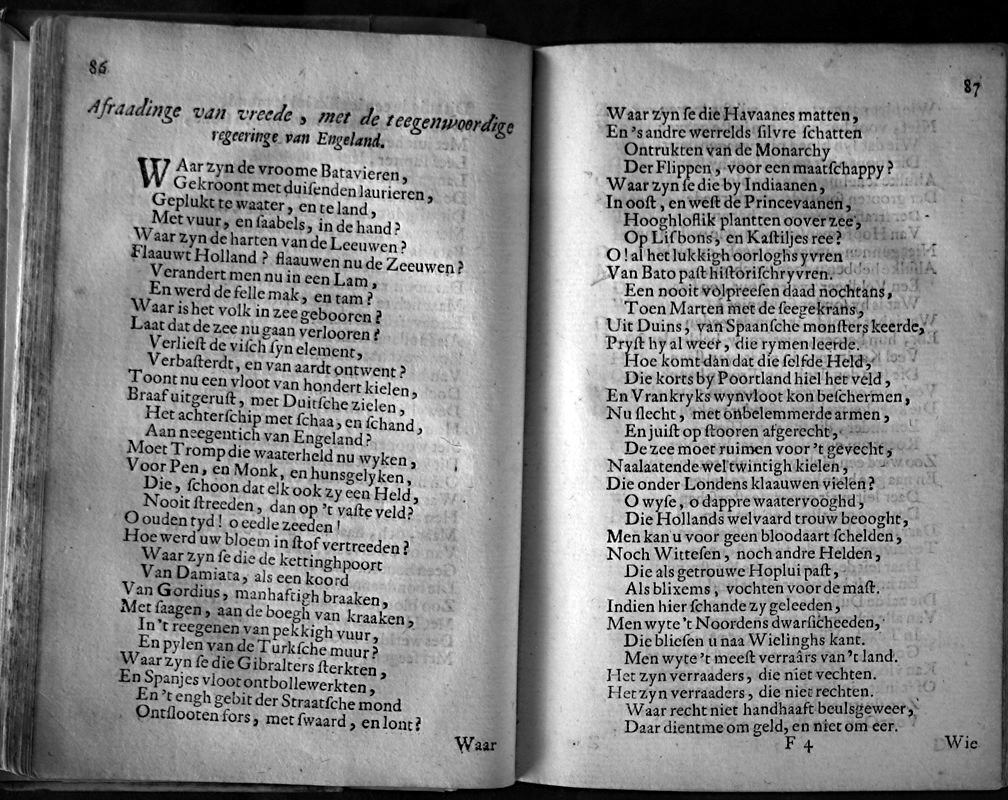 86
Afraadinge van vreede, met de teegenwoordige
regeeringe van Engeland.
WAar zyn de vroome Batavieren,
Gekroont met duiſenden laurieren,
Geplukt te waater, en te land,
Met vuur, en ſaabels, in de hand?
Waar zyn de harten van de Leeuwen?
Flaauwt Holland? flaauwen nu de Zeeuwen?
Verandert men nu in een Lam,
En werd de felle mak, en tam?
Waar is het volk in zee gebooren?
Laat dat de zee nu gaan verlooren?
Verlieſt de viſch ſyn element,
Verbaſterdt, en van aardt ontwent?
Toont nu een vloot van hondert kielen,
Braaf uitgeruſt, met Duitſche zielen,
Het achterſchip met ſchaa, en ſchand,
Aan neegentich van Engeland?
Moet Tromp die waaterheld nu wyken,
Voor Pen, en Monk, en hunsgelyken,
Die, ſchoon dat elk ook zy een Held,
Nooit ſtreeden, dan op 't vaſte veld?
O ouden tyd! o eedle zeeden!
Hoe werd uw bloem in ſtof vertreeden?
Waar zyn ſe die de kettinghpoort
Van Damiata, als een koord
Van Gordius, manhaftigh braaken,
Met ſaagen, aan de boegh van kraaken,
In't reegenen van pekkigh vuur,
En pylen van de Turkſche muur?
Waar zyn ſe die Gibralters ſterkten,
En Spanjes vloot ontbollewerkten,
En 't engh gebit der Straatſche mond
Ontſlooten fors, met ſwaard, en lont?
Waar
87
Waar zyn ſe die Havaanes matten,
En 's andre werrelds ſilvre ſchatten
Ontrukten van de Monarchy
Der Flippen, voor een maatſchappy?
Waar zyn ſe die by Indiaanen,
In ooſt, en weſt de Princevaanen,
Hooghloflik plantten oover zee,
Op Liſbons, en Kaſtiljes ree?
O! al het lukkigh oorloghs yvren
Van Bato paſt hiſtoriſchryvren.
Een nooit volpreeſen daad nochtans,
Toen Marten met de ſeegekrans,
Uit Duins, van Spaanſche monſters keerde,
Pryſt hy al weer, die rymen leerde.
Hoe komt dan dat die ſelfde Held,
Die korts by Poortland hiel het veld,
En Vrankryks wynvloot kon beſchermen,
Nu ſlecht, met onbelemmerde armen,
En juiſt op ſtooren afgerecht,
De zee moet ruimen voor 't gevecht,
Naalaatende wel twintigh kielen,
Die onder Londens klaauwen vielen?
O wyſe, o dappre waatervooghd,
Die Hollands welvaard trouw beooght,
Men kan u voor geen bloodaart ſchelden,
Noch Witteſen, noch andre Helden,
Die als getrouwe Hoplui paſt,
Als blixems, vochten voor de maſt.
Indien hier ſchande zy geleeden,
Men wyte 't Noordens dwarſicheeden,
Die blieſen u naa Wielinghs kant.
Men wyte 't meeſt verraârs van 't land.
Het zyn verraaders, die niet vechten.
Het zyn verraaders, die niet rechten.
Waar recht niet handhaaft beulsgeweer,
Daar dientme om geld, en niet om eer.
F 4
Wie